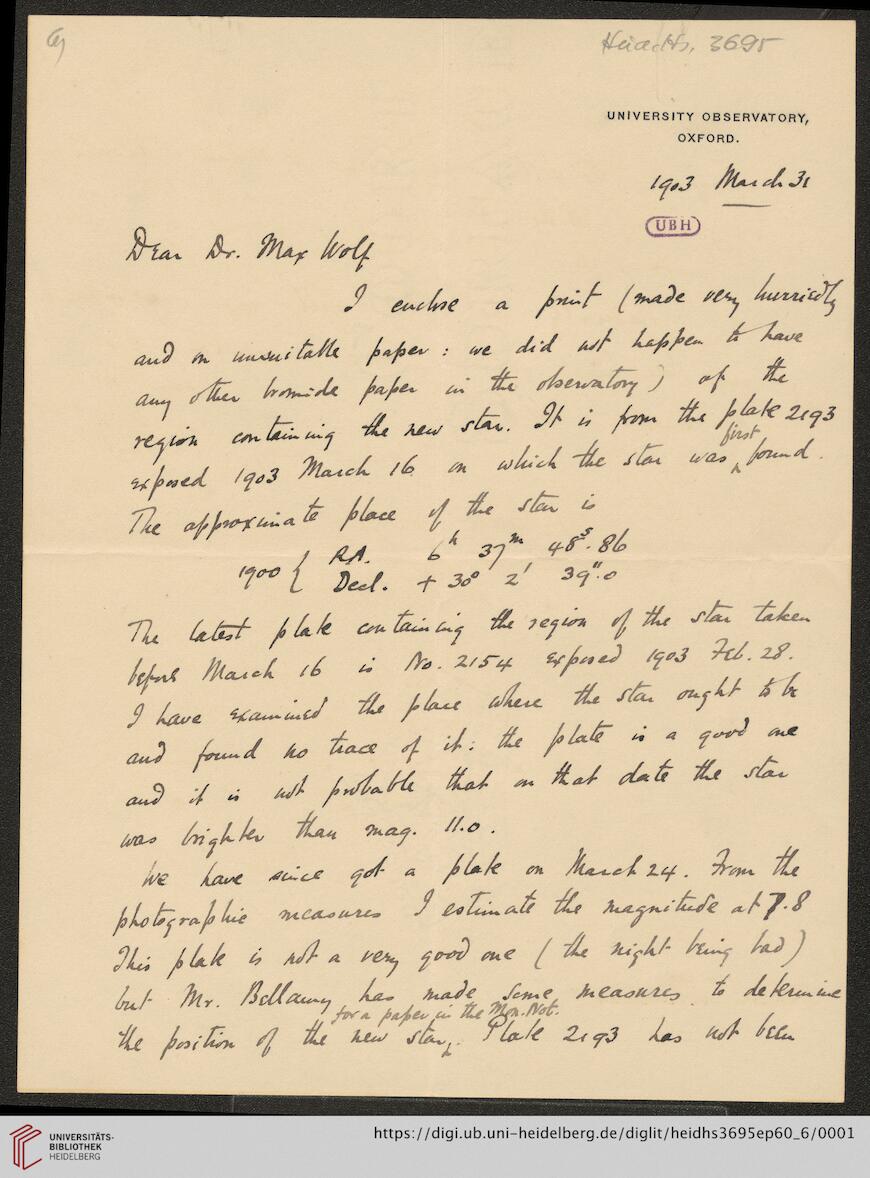 6)
Heid. Hs. 3695
UNIVERSITY OBSERVATORY,
OXFORD.
1903 March 31
UBH
Dear Dr. Max Wolf
I enclose a print (made very hurriedly
and on unsuitable paper : we did not happen to have
any other bromide paper in the observatory) of the
region containing the new star. It is from the plate 2193
exposed 1903 March 16 on which the star was first found.
The approximate place of the star is
1900 { R.A. 6h 37m 48s.86
Decl. + 30° 2' 39".0
The latest plate containing the region of the star taken
before March 16 is No. 2154 exposed 1903 Feb. 28.
I have examined the place where the star ought to be
and found no trace of it : the plate is a good one
and it is not probable that on that date the star
was brighter than mag. 11.0.
We have since got a plate on March 24. From the
photographic measures I estimate the magnitude at 7.8
This plate is not a very good one (the night being bad)
but Mr. Bellamy has made some measures to determine
the position of the new star for a paper in the Mon. Not. . Plate 2193 has not been
UNIVERSITÄTS-
BIBLIOTHEK
HEIDELBERG
https://digi.ub.uni-heidelberg.de/diglit/heidhs3695ep60_6/0001